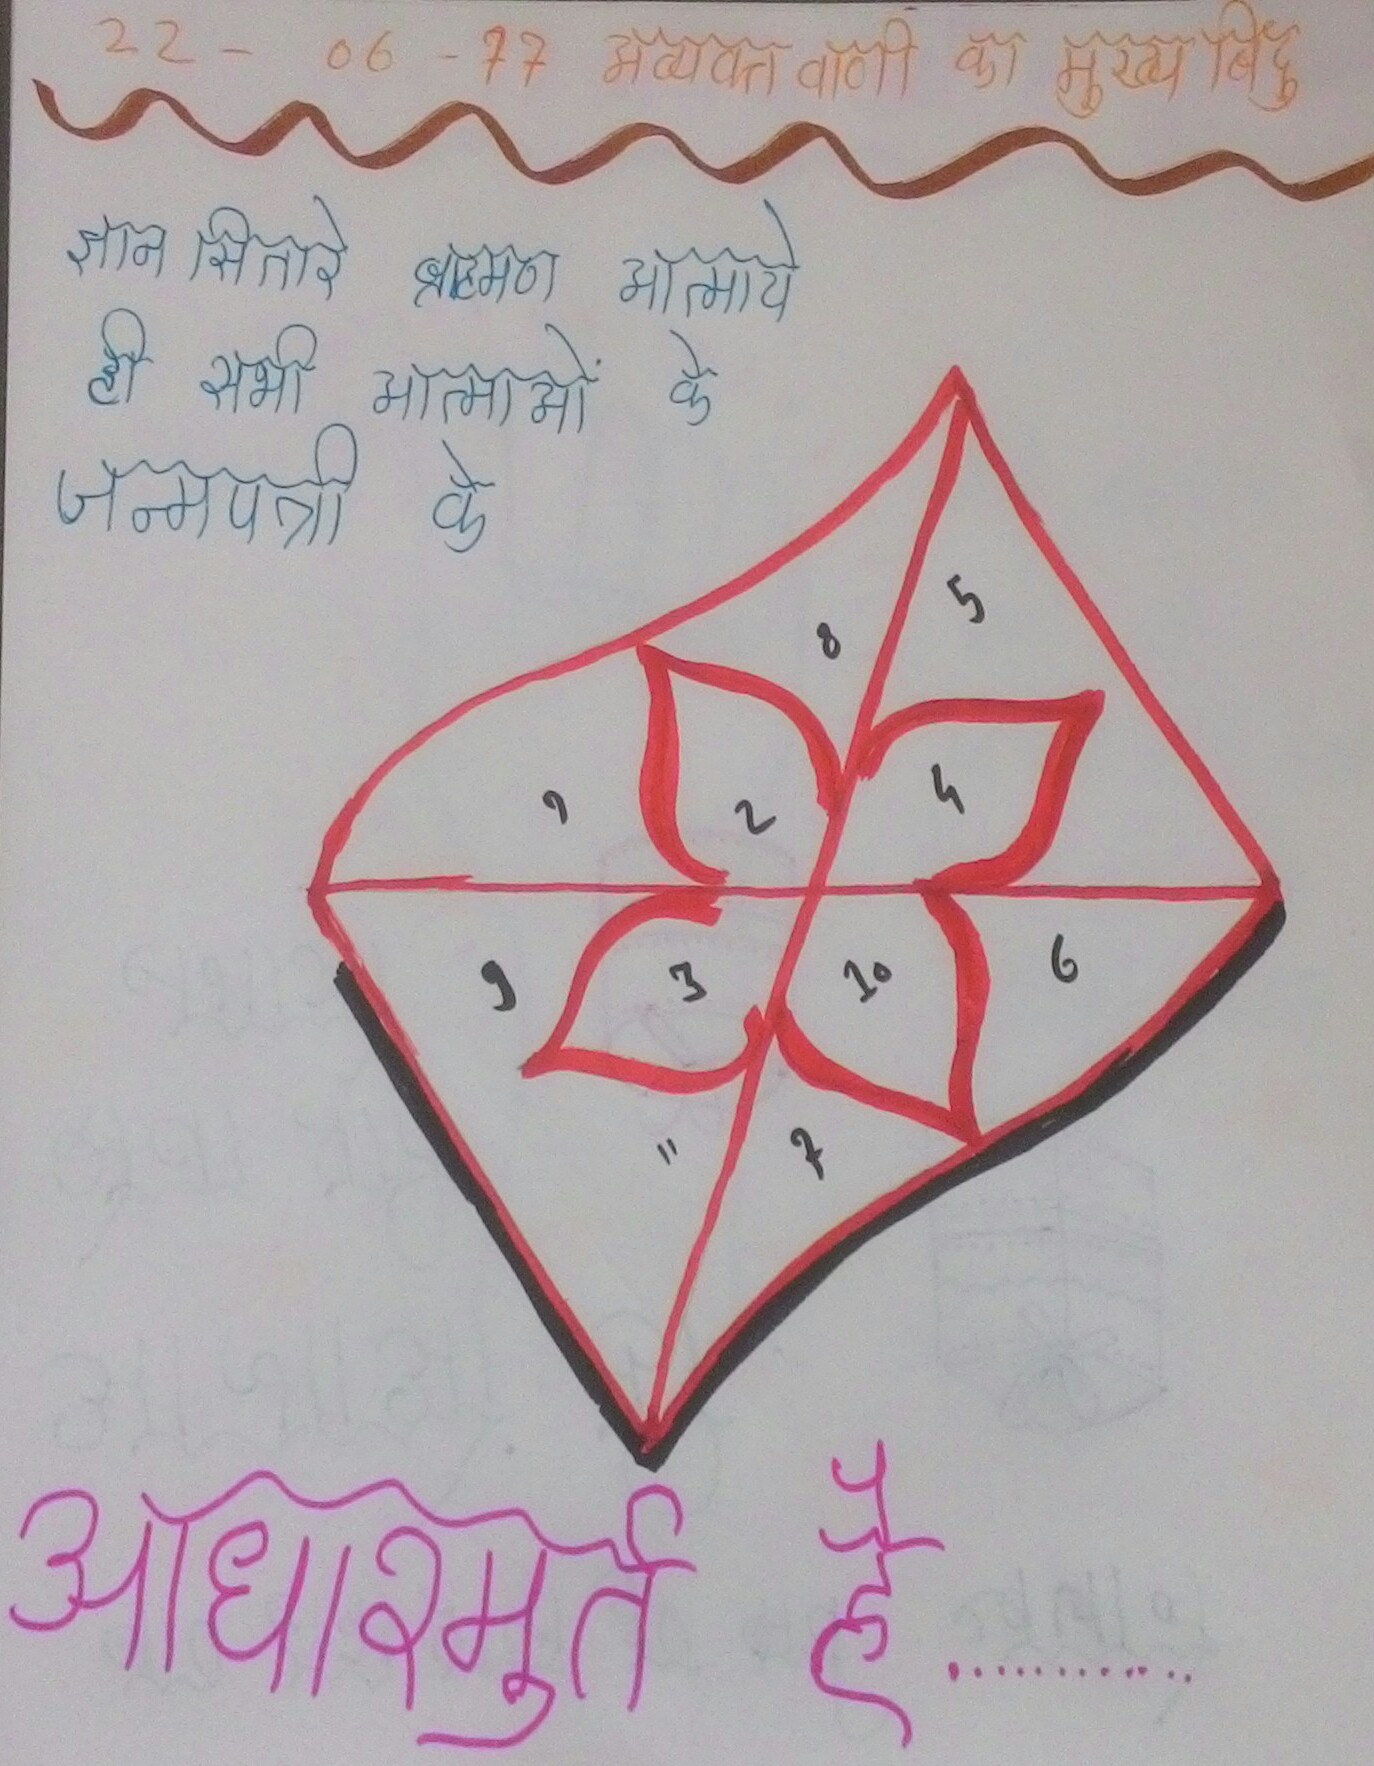 22 - 06 - 77 अव्यक्त वाणी का मुख्य बिंदु
ज्ञान सितारे ब्राह्मण आत्माये
ही सभी आत्माओं के
जन्मपत्री के
5
8
१ 2 4
9 3 10 6
11 7
आधारमुर्त है..............